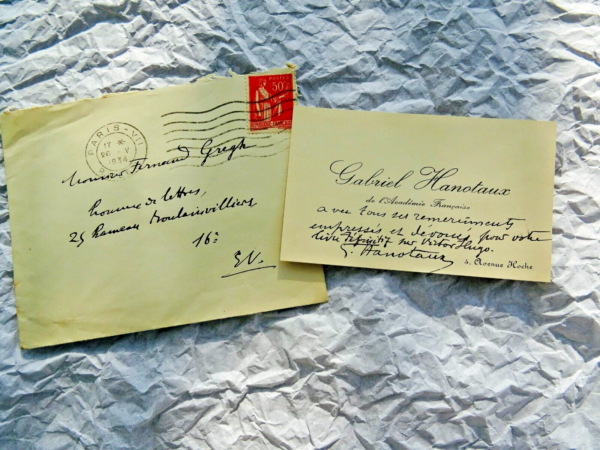 PARIS-VII
17 H
26 - V
1934
POSTES
50c
Monsieur Fernand Gregh
homme de lettres,
25 hameau Boulainvilliers
16e
E.V.
Gabriel Hanotaux
de l'Académie Française
avec tous ses remerciements
empressés et dévoués, pour votre
livre définitif sur Victor Hugo.
G. Hanotaux
4, Avenue Hoche